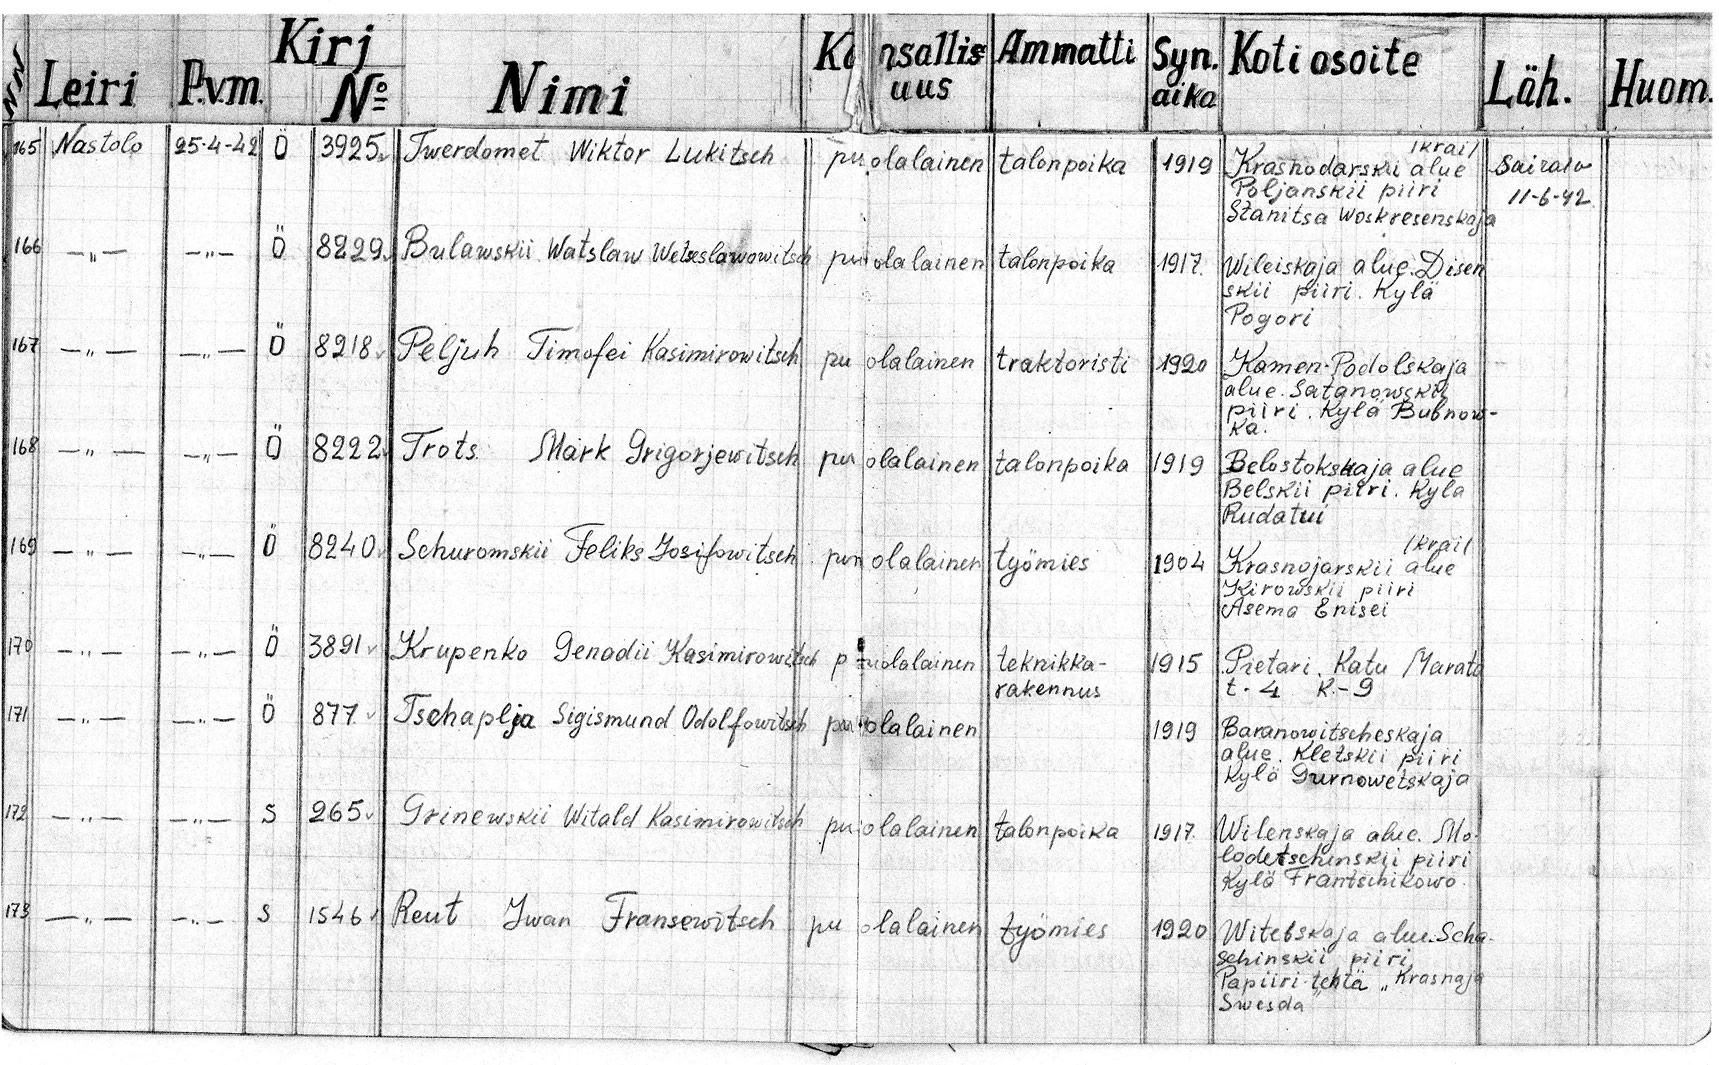 NN Leiri P.v.m. Kirj No Nimi Kansallisuus Ammatti Syn. aika Kotiosoite Läh. Huom.
165 Nastolo 25-4-42 Ö 3925 Twerdomet Wiktor Lukitsch puolalainen talonpoika 1919 Krasnodarskii /krai/ alue
Poljanskii piiri
Stanitsa Woskresenskaja
Sairala
11-6-42
166 —„— —„— Ö 8229 Bulawskii Watslaw Wetseslawowitsch puolalainen talonpoika 1917 Wileiskaja alue. Disen
skii piiri. Kylä
Pogori
167 —„— —„— Ö 8218 Peljuh Timofei Kasimirowitsch puolalainen traktoristi 1920 Kamen-Podolskaja
alue. Satanowskii
piiri. Kylä Bubnow-
ka.
168 —„— —„— Ö 8222 Trots Mark Grigorjewitsch puolalainen talonpoika 1919 Belostokskaja alue
Belskii piiri. Kyla
Rudatui
169 —„— —„— Ö 8240 Schuromskii Feliks Josifowitsch puolalainen työmies 1904 Krasnojarskii /krai/ alue
Kirowskii piiri
Asema Enisei
170 —„— —„— Ö 3891 Krupenko Genadii Kasimirowitsch puolalainen teknikka-
rakennus
1915 Pietari. Katu Marata
t-4 K.-9
171 —„— —„— Ö 877 Tschaplja Sigismund Odolfowitsch puolalainen 1919 Baranowitscheskaja
alue. Kletskii piiri
Kylä Gurnowetskaja
172 —„— —„— S 265 Grinewskii Witald Kasimirowitsch puolalainen talonpoika 1917 Wilenskaja alue. Mo-
lodetschinskii piiri
Kylä Frantschikowo.
173 —„— —„— S 1546 Reut Jwan Fransewitsch puolalainen työmies 1920 Witebskaja alue. Scha-
schinskii piiri
Papiiri-tehtä „Krasnaja
Swesda"